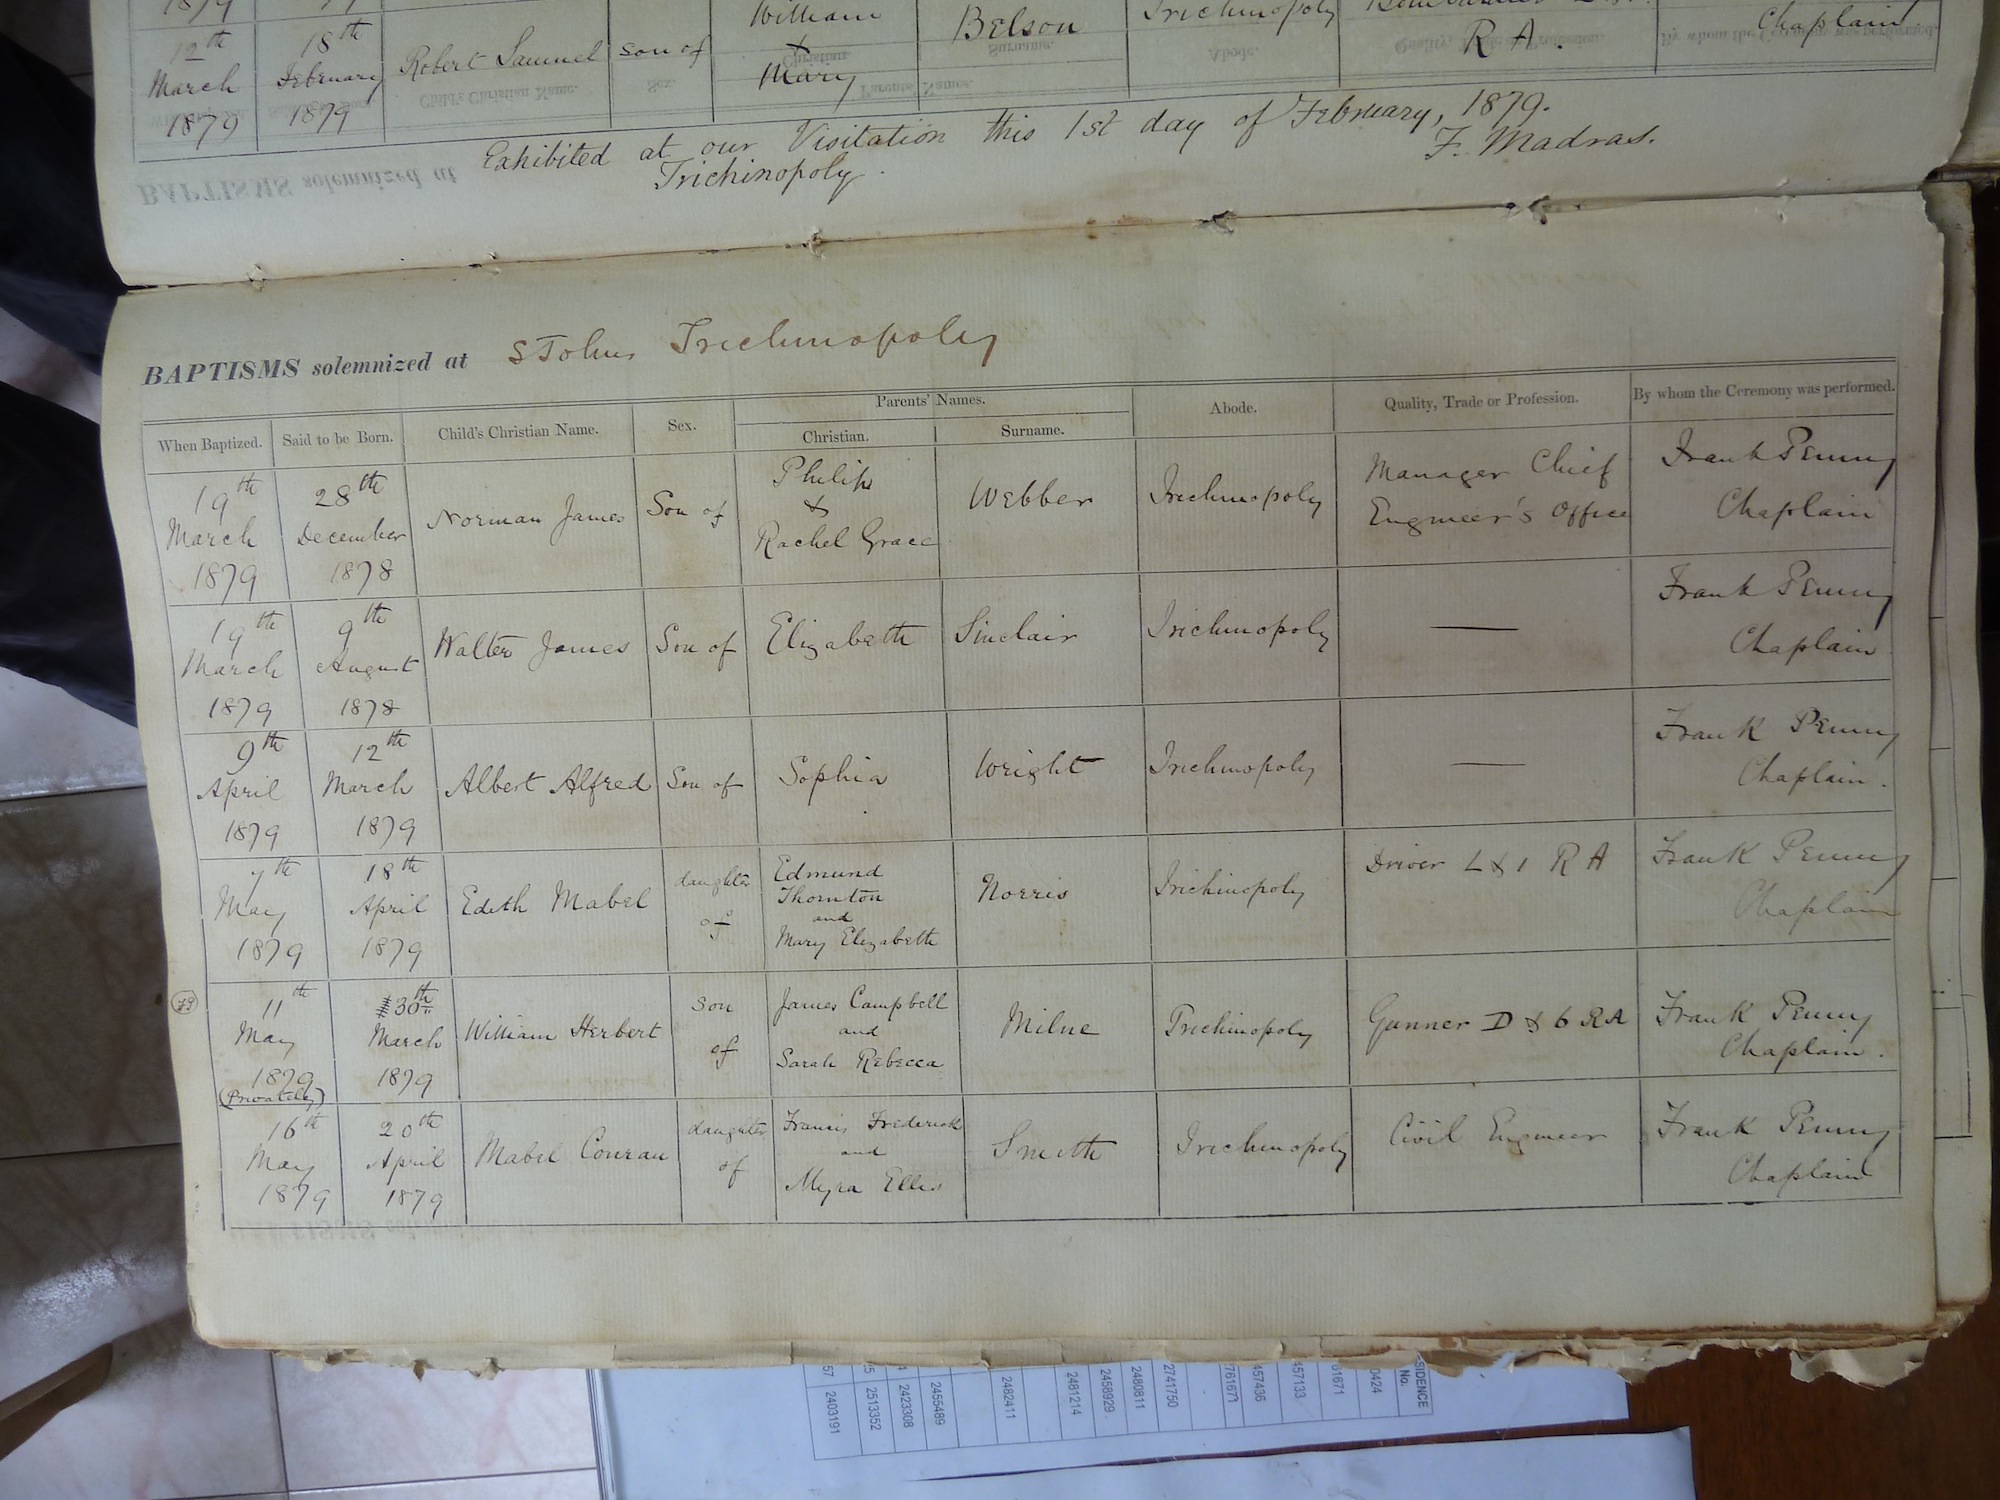 William
Belson
Trichinopoly
Chaplain
12th
March
1879
18th
February
1879
Robert Samuel
son of
&
Mary
R A.
Exhibited at our Visitation this 1st day of February, 1879.
Trichinopoly.
F. Madras.
BAPTISMS solemnized at St Johns Trichinopoly
When Baptized.
Said to be Born.
Child's Christian Name.
Sex.
Parents' Names.
Christian.
Surname.
Abode.
Quality, Trade or Profession.
By whom the Ceremony was performed.
19th
March
1879
28th
December
1878
Norman James
Son of
Philip
&
Rachel Grace
Webber
Trichinopoly
Manager Chief
Engineer's Office
Frank Penny
Chaplain
19th
March
1879
9th
August
1878
Walter James
Son of
Elizabeth
Sinclair
Trichinopoly
—
Frank Penny
Chaplain
9th
April
1879
12th
March
1879
Albert Alfred
Son of
Sophia
Wright
Trichinopoly
—
Frank Penny
Chaplain.
7th
May
1879
18th
April
1879
Edith Mabel
daughter
of
Edmund
Thornton
and
Mary Elizabeth
Norris
Trichinopoly
Driver L & 1 R A
Frank Penny
Chaplain
79
11th
May
1879
(Privately)
30th
March
1879
William Herbert
Son
of
James Campbell
and
Sarah Rebecca
Milne
Trichinopoly
Gunner D & 6 RA
Frank Penny
Chaplain.
16th
May
1879
20th
April
1879
Mabel Conran
daughter
of
Francis Frederick
and
Myra Ellis
Smith
Trichinopoly
Civil Engineer
Frank Penny
Chaplain
SIDENCE
No.
0424
61671
457133
457436
761671
2741750
2480811
2458929
2481214
2482411
2455489
2423308
2513352
2403191